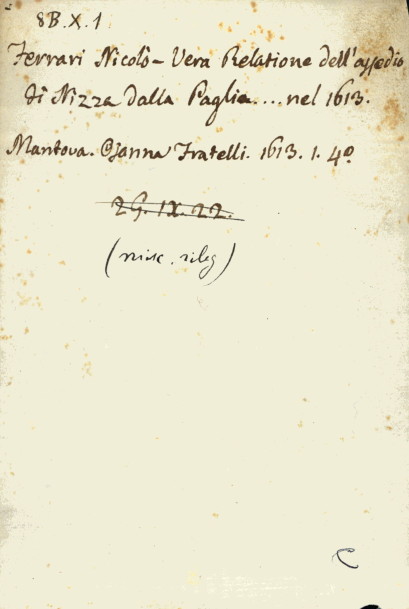 8B.X.1
Ferrari Nicolò - Vera Relatione dell'assedio
di Nizza dalla Paglia.... nel 1613.
Mantova. Osanna Fratelli. 1613. 1. 4º
2G.IX.22.
(misc. rileg)
C